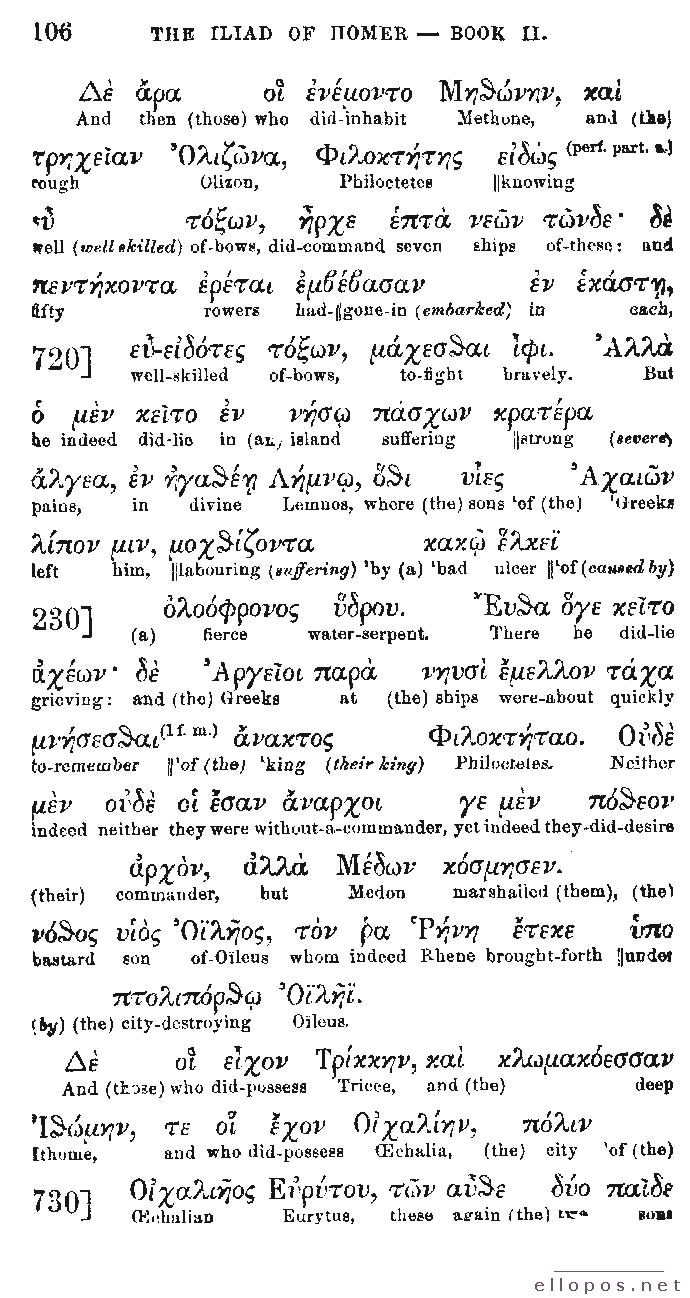 106 THE ILIAD OF HOMER — BOOK II.
Δὲ ἄρα οἳ ἐνέμοντο Μηθώνην, καὶ
And then (those) who did-inhabit Methone, and (the)
τρηχεῖαν Ὀλιζῶνα, Φιλοκτήτης εἰδὼς (perf. part. a.)
rough Olizon, Philoctetes ||knowing
εὖ τόξων, ἦρχε ἑπτὰ νεῶν τῶνδε· δὲ
well (well skilled) of-bows, did-command seven ships of-these: and
πεντήκοντα ἐρέται ἐμβέβασαν ἐν ἑκάστῃ,
fifty rowers had-||gone-in (embarked) in each,
720] εὖ-εἰδότες τόξων, μάχεσθαι ἶφι. Ἀλλὰ
well-skilled of-bows, to-fight bravely. But
ὁ μὲν κεῖτο ἐν νήσῳ πάσχων κρατέρα
he indeed did-lie in (an) island suffering ||strong (severe)
ἄλγεα, ἐν ἠγαθέῃ Λήμνῳ, ὅθι υἷες Ἀχαιῶν
pains, in divine Lemnos, where (the) sons 'of (the) 'Greeks
λίπον μιν, μοχθίζοντα κακῷ ἕλκεϊ
left him, ||labouring (suffering) 'by (a) 'bad ulcer ||'of (caused by)
230] ὀλοόφρονος ὕδρου. Ἔνθα ὅγε κεῖτο
(a) fierce water-serpent. There he did-lie
ἀχέων· δὲ Ἀργεῖοι παρὰ νηυσὶ ἔμελλον τάχα
grieving: and (the) Greeks at (the) ships were-about quickly
μνήσεσθαι (1 f. m.) ἄνακτος Φιλοκτήταο. Οὐδὲ
to-remember ||'of (the) 'king (their king) Philoctetes. Neither
μὲν οὐδὲ οἱ ἔσαν ἄναρχοι γε μὲν πόθεον
indeed neither they were without-a-commander, yet indeed they-did-desire
ἀρχὸν, ἀλλὰ Μέδων κόσμησεν.
(their) commander, but Medon marshalled (them), (the)
νόθος υἱὸς Ὀϊλῆος, τὸν ῥα Ῥήνη ἔτεκε ὑπο
bastard son of-Oïleus whom indeed Rhene brought-forth ||under
πτολιπόρθῳ Ὀϊλῆϊ.
(by) (the) city-destroying Oïleus.
Δὲ οἳ εἶχον Τρίκκην, καὶ κλωμακόεσσαν
And (those) who did-possess Tricce, and (the) deep
Ἰθώμην, τε οἳ ἔχον Οἰχαλίην, πόλιν
Ithome, and who did-possess Œchalia, (the) city 'of (the)
730] Οἰχαλιῆος Εὐρύτου, τῶν αὖθε δύο παῖδε
Œchalian Eurytus, these again (the) two sons
ellopos.net